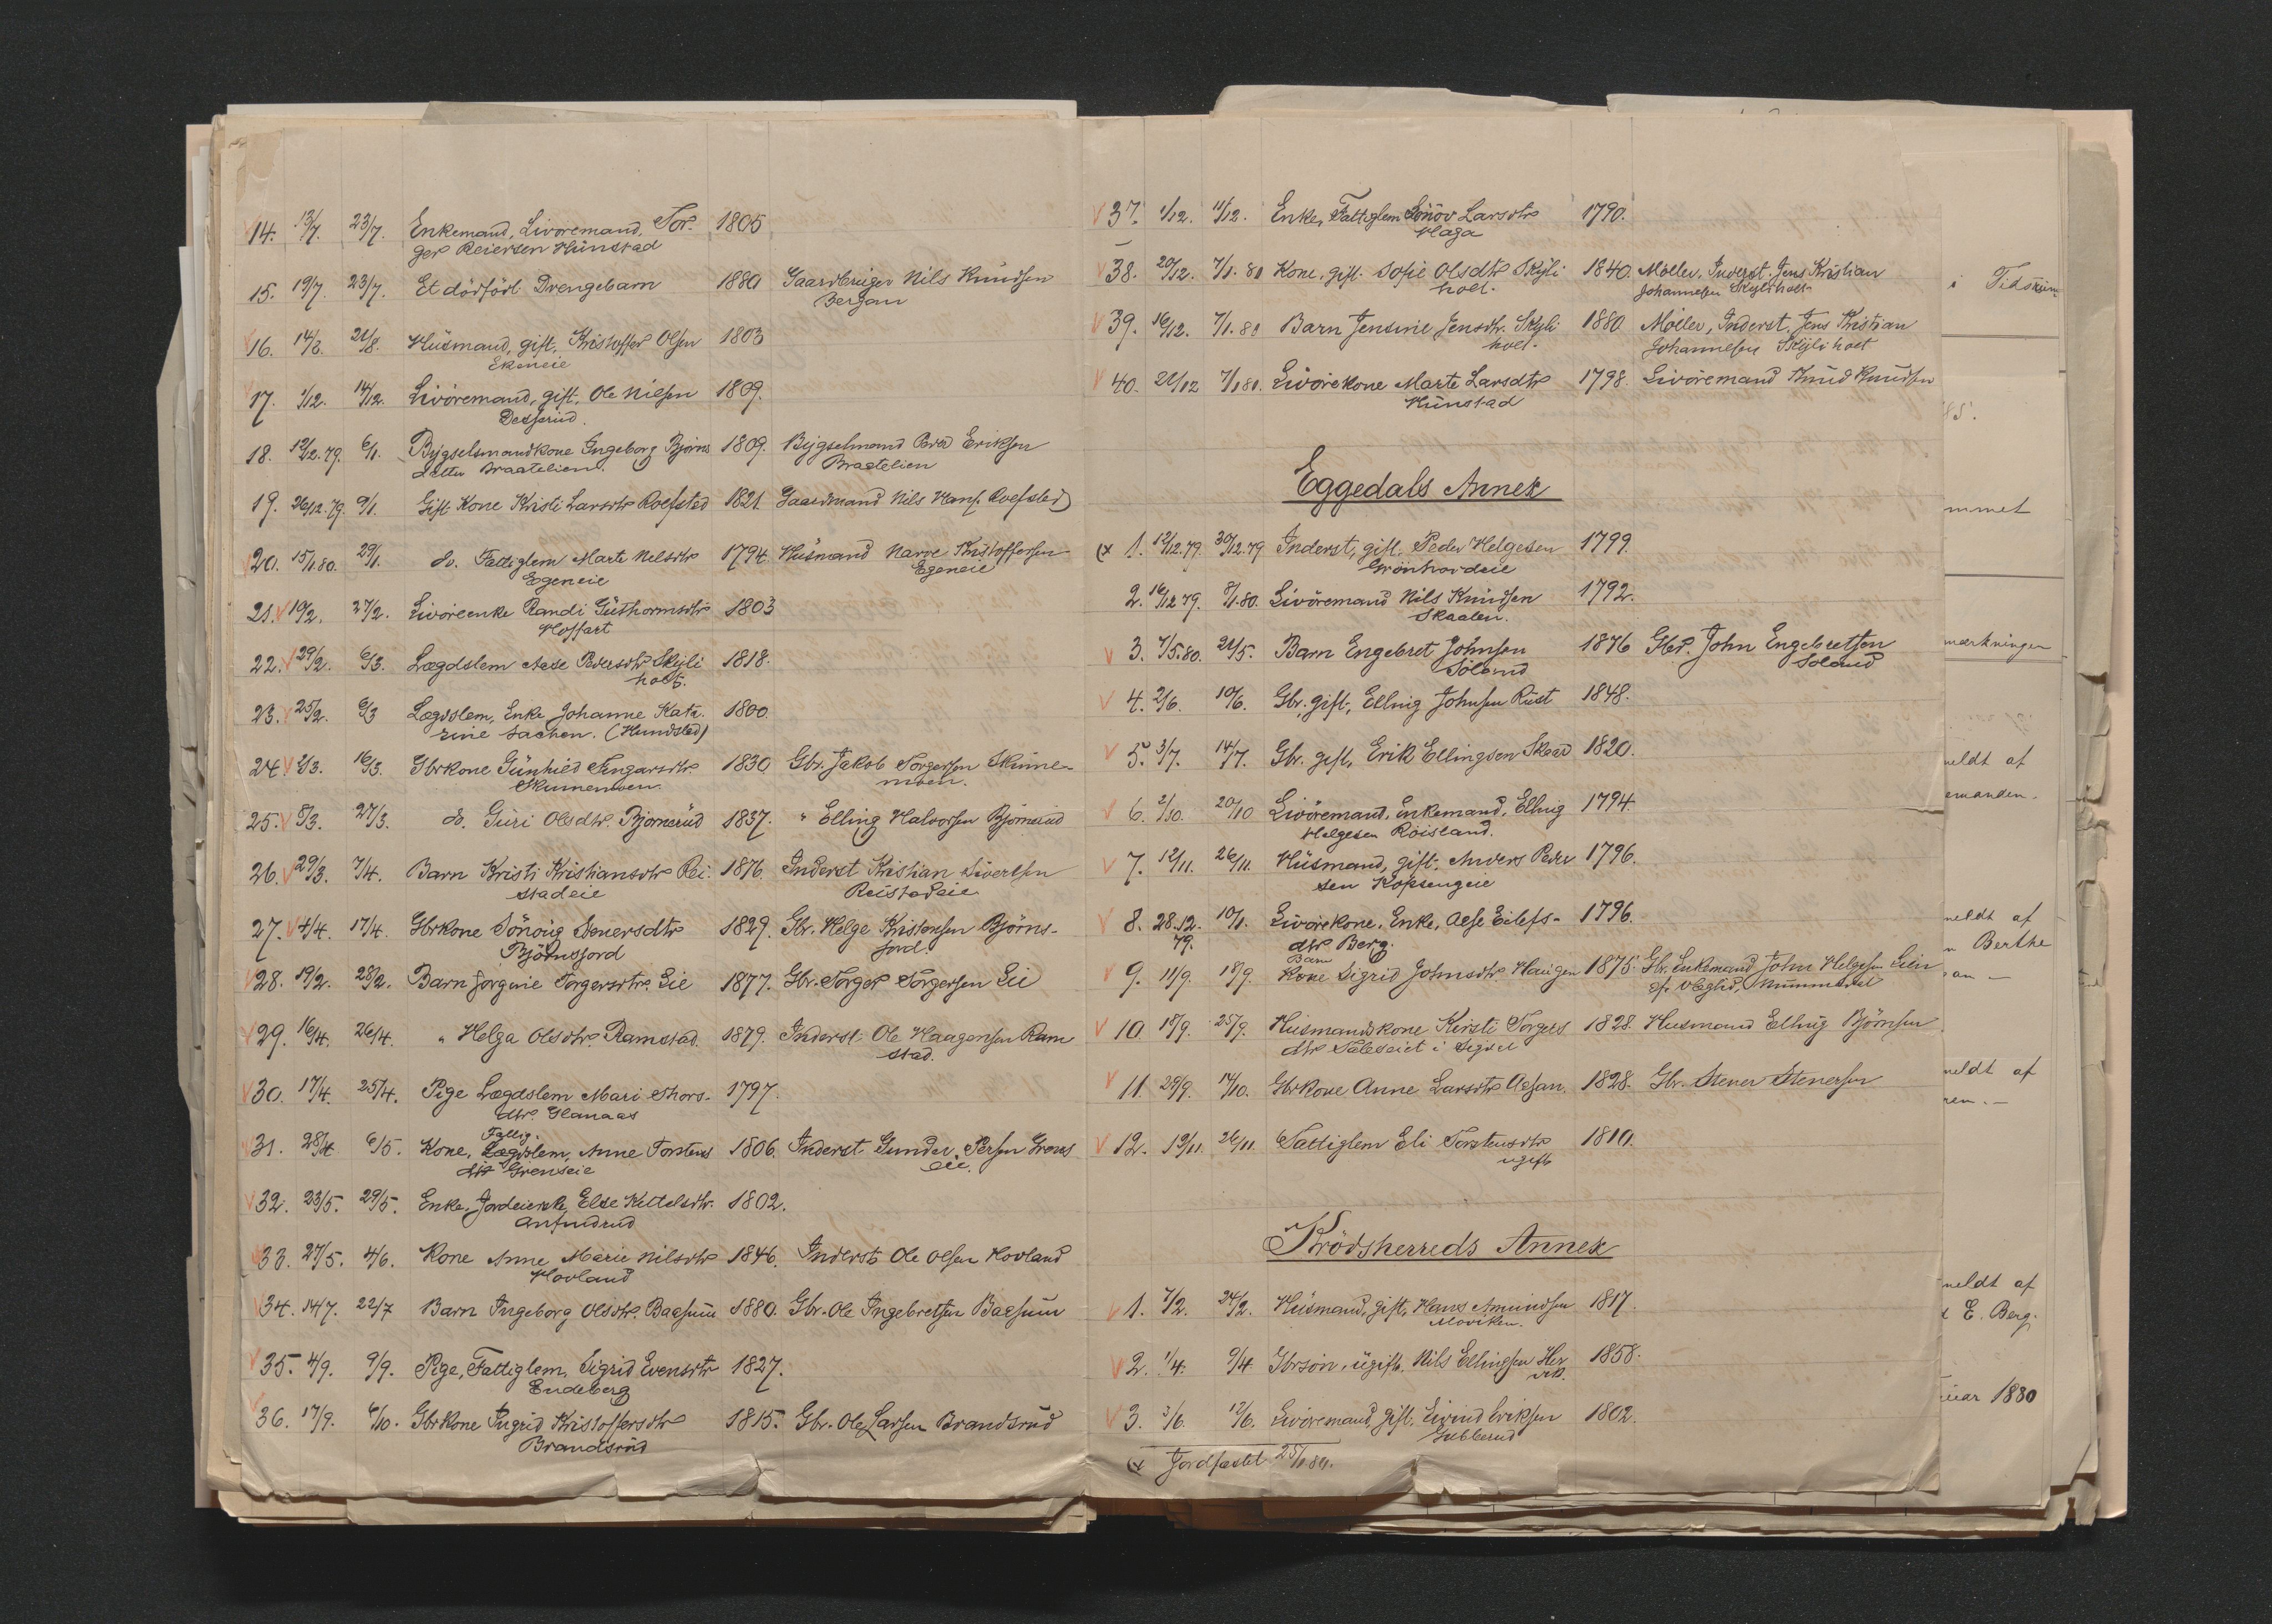 14. 13/7. 23/7. Enkemand, Livöremand, Tor- 1805
ger Reiersen Hünstad
15. 19/7. 23/7. Et dödfödt Drengebarn 1880 Gaardbruger Nils Knudsen
Bergan
16. 14/8. 21/8. Hüsmand, gift, Kristoffer Olsen 1803
Ekeneie
17. 1/12. 14/12. Livöremand, gift, Ole Nilsen 1809.
18. 12/12.79. 6/1. Bygselsmandkone Ingeborg Björns 1809. Bygselmand Peder Eriksen
datter Braatelien. Braatelien
19. 26/12.79. 9/1. Gift Kone Kristi Larsdtr Roefsted 1821. Gaardmand Nils Hans. Roefsted
20. 15/1.80. 29/1. do. Fattiglem Marte Nilsdtr 1794. Hüsmand Narve Kristoffersen
Egeneie Egeneie
21. 19/2. 27/2. Livöreenke Randi Güthormsdtr 1803
Hoffart
22. 29/2. 6/3. Lægdslem Aase Pedersdtr Skjli 1818.
holt.
23. 25/2. 6/3 Lægdslem, Enke Johanne Kata- 1800.
rine Sachen. (Hundsted)
24 2/3. 16/3. Gbrkone Günhild Fingarsdtr. 1830 Gbr. Jakob Torgersen Skinne-
Skinnemoen. moen.
25. 8/3. 27/3. do. Guri Olsdtr. Björnerüd 1837. " Elling Halvorsen Björnerüd
26. 29/3. 7/4. Barn Kristi Kristiansdtr Rei 1876. Inderst Kristian Sivertsen
stadeie Reistadeie
27. 4/4. 17/4. Gbrkone Sönöüg Stenersdtr 1829. Gbr. Helge Kristensen Björns-
Björnsjord jord.
28. 19/2. 28/2. Barn Jörgine Torgersdtr. Lie 1877. Gbr. Torger Torgersen Lie
29. 16/4. 26/4. " Helga Olsdtr. Ramstad. 1879. Inderst Ole Haagensen Ram
stad.
30. 17/4. 25/4. Pige Lægdslem Mari Thors- 1797.
dtr Glanaas
Fattig.
31. 28/4 6/5. Kone, Lægdslem, Anne Torstens 1806. Inderst Gunder Persen Grens
dtr Grenseie eie.
32. 23/5. 29/5. Enke, Jordeierske, Else Kittelsdtr. 1802.
Anfindrud
33. 27/5. 4/6. Kone Anne Marie Nilsdtr 1846. Inderst Ole Olsen Hovland
Hovland
34. 14/7. 22/7 Barn Ingeborg Olsdtr. Baasum 1880. Gbr. Ole Ingebretsen Baasum
35. 4/9. 9/9. Pige, Fattiglem, Sigrid Evensdtr 1827.
Endeberg
36. 17/9. 6/10. Gbrkone Ingrid Kristoffersdtr 1815. Gbr. Ole Larsen Brandsrud
Brandsrud
37. 1/12. 11/12. Enke, Fattiglem Sönöv Larsdtr 1790.
Haga
38. 20/12. 7/1.80 Kone, gift. Sofie Olsdtr Skjli 1840. Möller, Inderst. Jens Kristian
holt. Johannesen Skjliholt
39. 16/12. 7/1.80 Barn Jensine Jensdtr. Skjli 1880. Möller, Inderst. Jens Kristian
holt. Johannesen Skjliholt
40. 21/12 7/1 80. Livörekone Marte Larsdtr 1798. Livöremand Knud Knudsen
Hünstad
Eggedals Annex
(x 1. 12/12.79. 30/12.79 Inderst, gift. Peder Helgesen 1799.
Grönhovdeie
2. 16/12 79. 8/1.80. Livöremand Nils Knudsen 1792.
Skaalen.
3. 7/5.80. 22/5. Barn Engebret Johnsen 1876 Gbr. John Engebretsen
Söland Soland
4. 2/6. 10/6. Gbr, gift, Elling Johnsen Rüst 1848.
5. 3/7. 14/7. Gbr. gift, Erik Ellingsen Skaar 1820.
6. 2/10. 20/10 Livöremand, Enkemand, Elling 1794.
Helgesen Röisland.
7. 12/11. 26/11. Hüsmand, gift. Anders Peder 1796.
sen Kopsengeie
8. 28.12. 10/1. Livörekone, Enke, Aase Eilefs- 1796.
79. dtr Berg.
Barn
9. 11/9. 18/9. Kone Sigrid Johnsdtr. Haugen 1875. Gbr. Enkemand John Helgesen Lien
10. 18/9. 25/9. Husmandskone Kirsti Torgers 1828. Husmand Elling Björnsen
dtr Taleseiet i Sigdal
11. 29/9. 14/10. Gbrkone Anne Larsdtr Aasan. 1828. Gbr. Stener Stenersen
12. 19/11. 26/11. Fattiglem Eli Torstensdtr 1810.
ugift
Krödsherreds Annex
1. 7/2. 24/2. Hüsmand, gift, Hans Amundsen 1817.
Moviken.
2. 1/4. 9/4 Gbrsön, ügift. Nils Ellingsen Her 1858.
vik.
3. 3/6. 12/6. Livöremand, gift. Eivind Eriksen 1802.
Gubberud
(x Jordfæstet 25/1.80.
i Tidsrüm
mmet
mærkninger
meldt af
emanden.
meldt af
n Berthe
an —
meldt af
ren. —
meldt af
E. Berg.
uar 1880